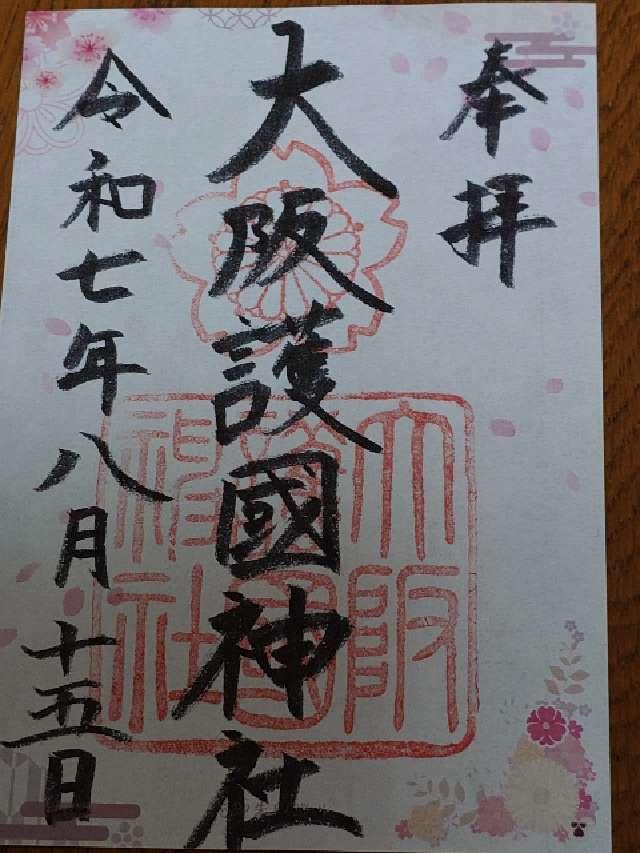 奉拝
大阪護國神社
令和七年八月十五日
大阪
護國
神社